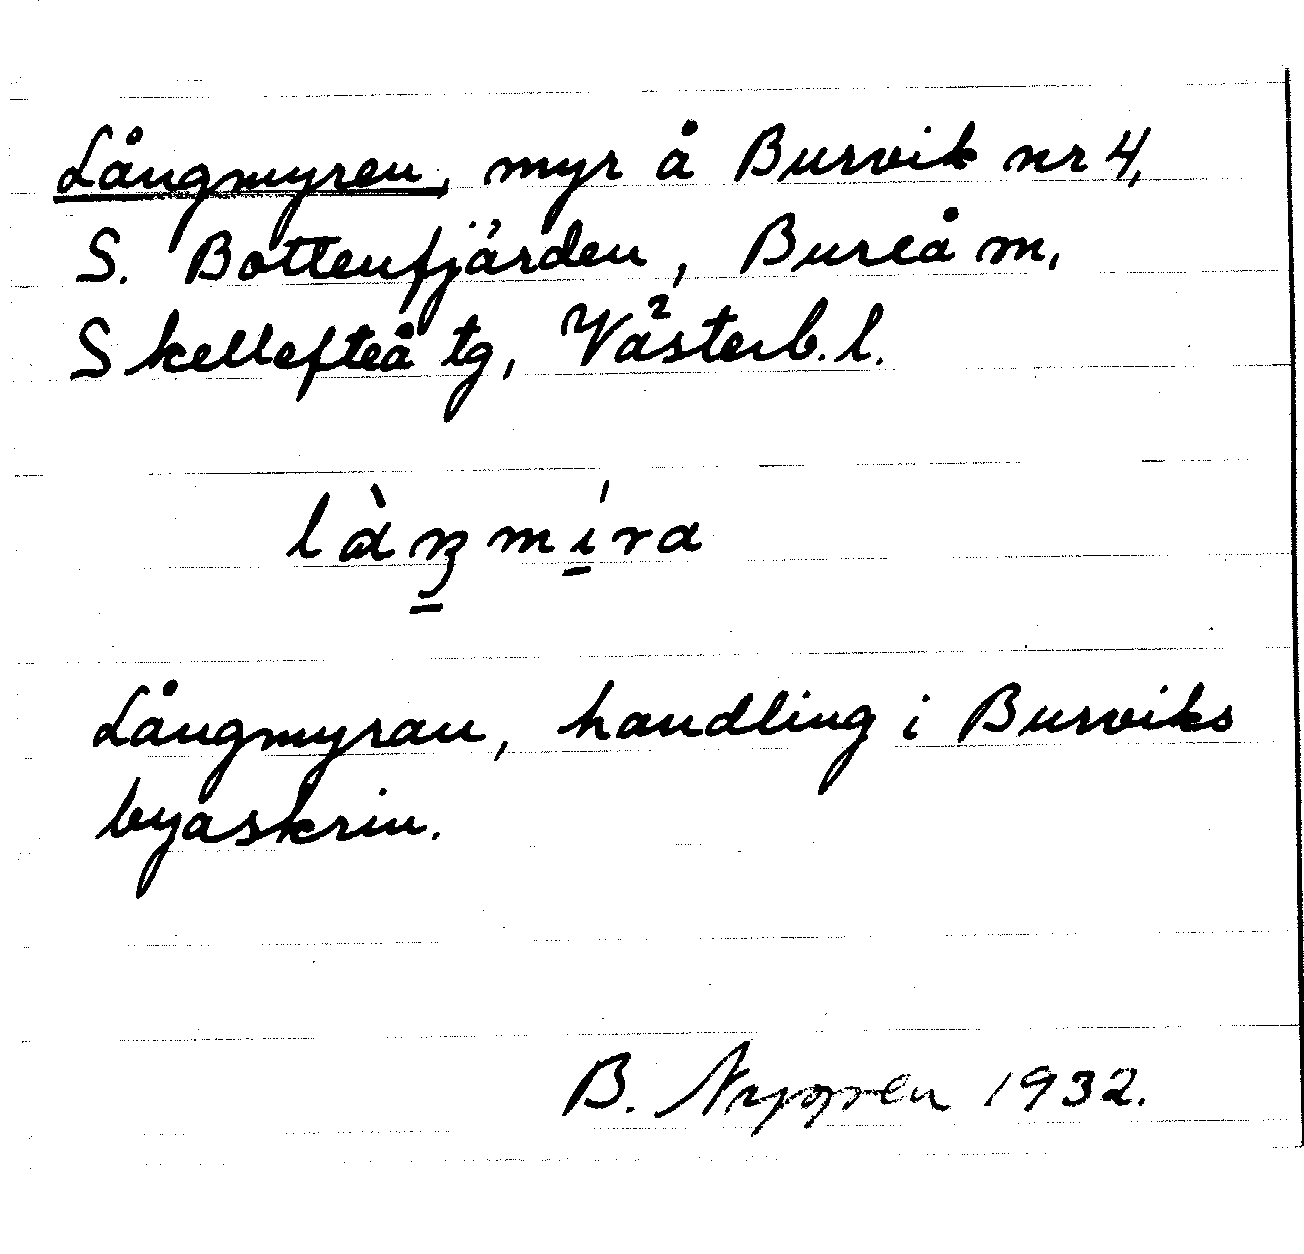 Långmyren, myr å Burvik nr 4,
S. Bottenfjärden, Bureå m,
Skellefteå tg, Västerb. l.
làŋmíra
Långmyran, handling i Burviks
byaskrin.
B. Nygren 1932.